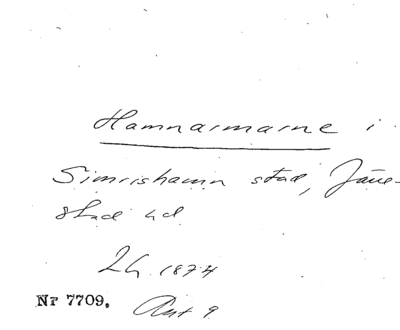 Hamnarmarne i
Simrishamn stad, Järe-
stad hd
2h. 1874
Nr 7709. Ant 9